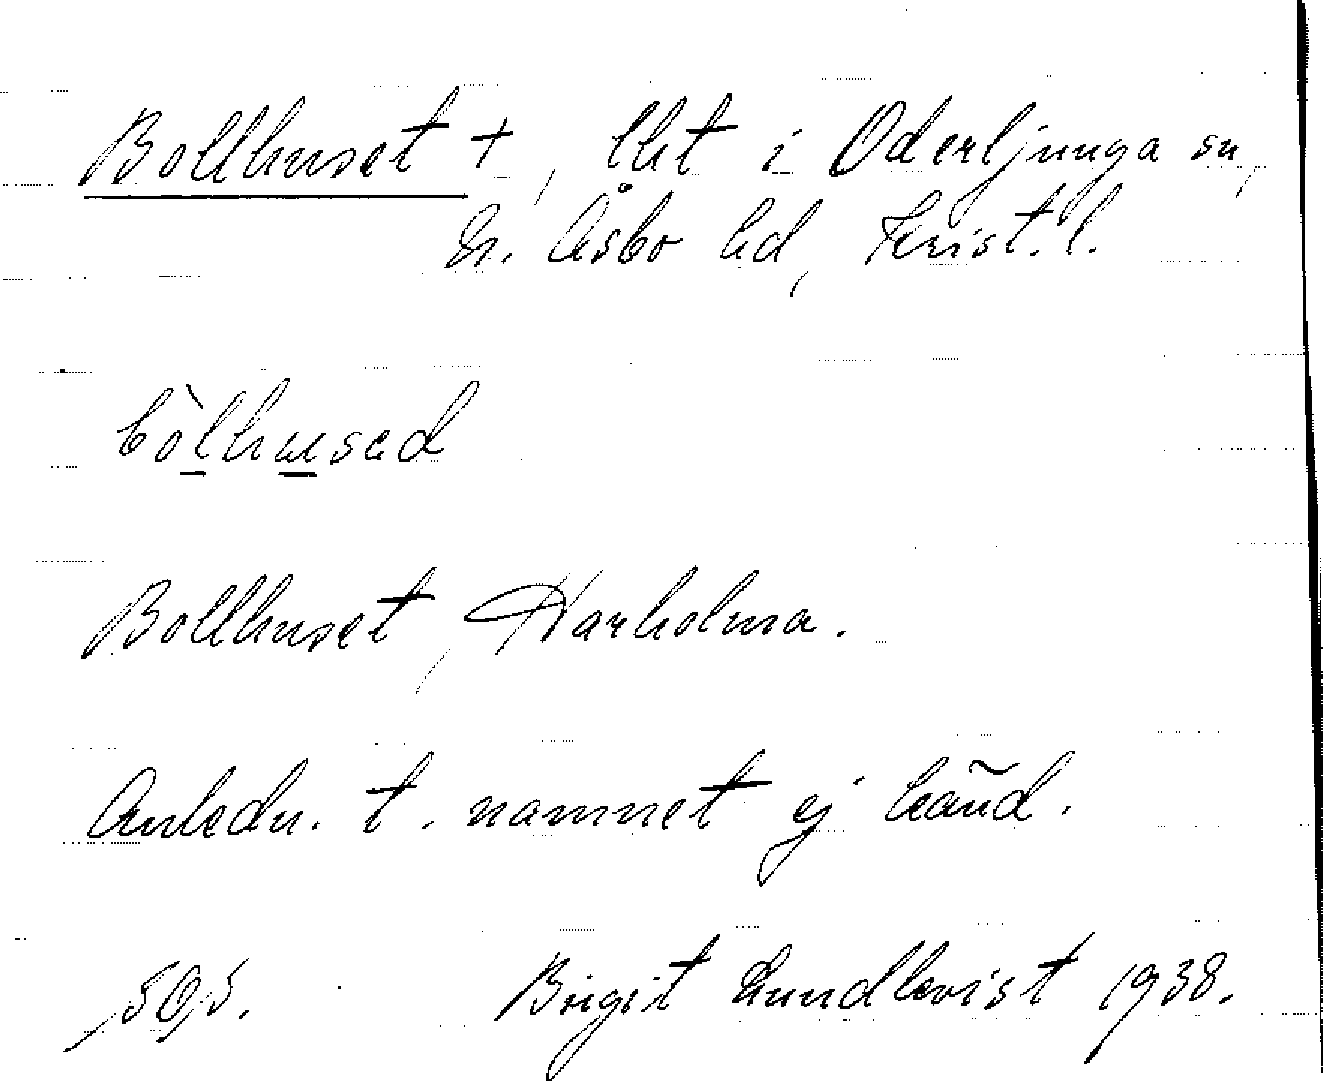 Bollhuset +, lht i Oderljunga sn,
N. Åsbo hd, Krist. l.
bòlhused
Bollhuset, Harholma.
Anledn. t. namnet ej känd.
Birgit Lundkvist 1938.